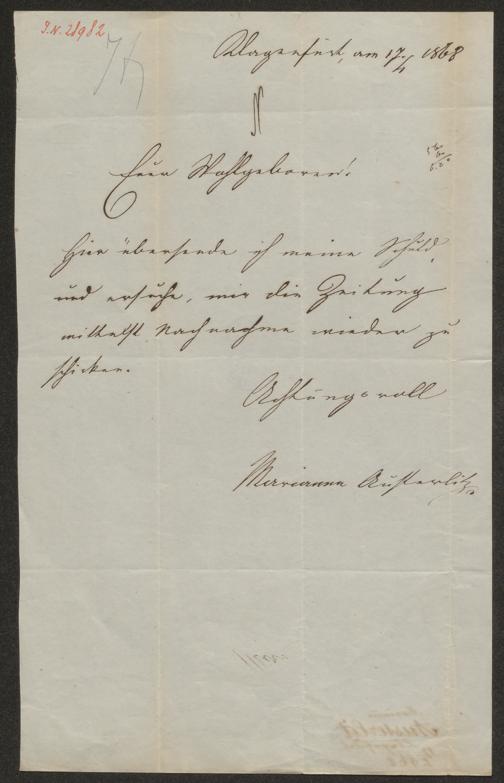 J.N. 28982
Klagenfurt, am 17/4 1868
N
Euer Wohlgeboren!
Hier übersende ich meine Schuld,
und ersuche, mir die Zeitung
mittelst Nachnahme wieder zu
schicken.
Achtungsvoll
Marianne Austerlitz